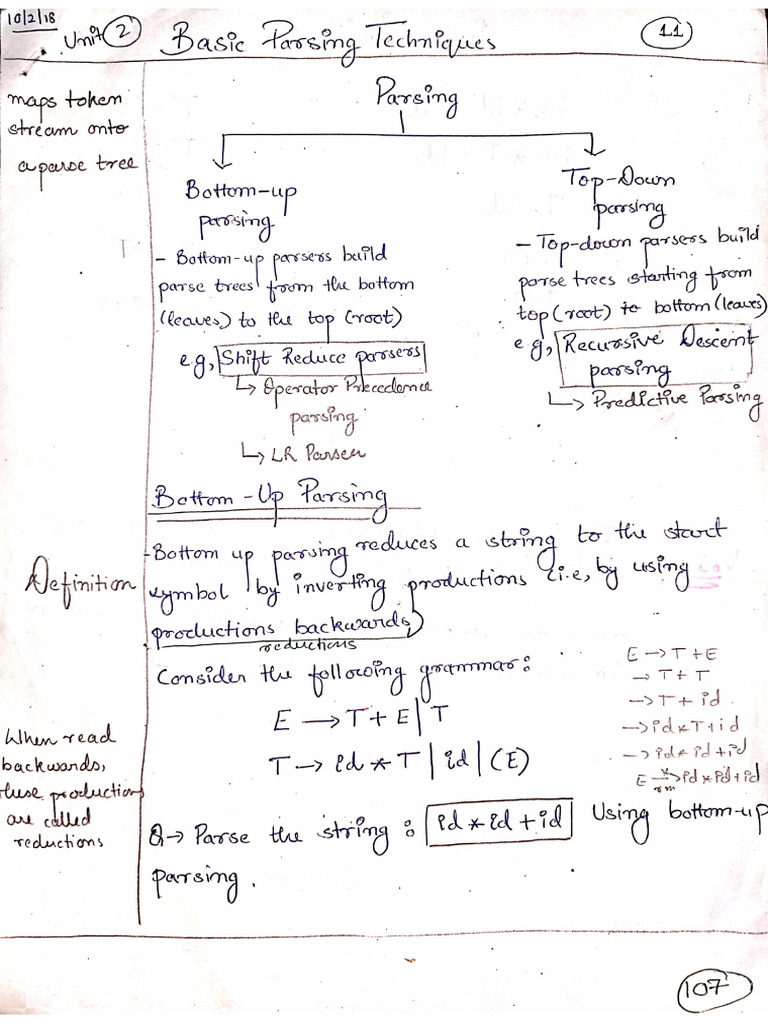 10/2/18
Unit 2 Basic Parsing Techniques 11
maps token
stream onto
a parse tree
Parsing
Bottom-up
parsing
- Bottom-up parsers build
parse trees from the bottom
(leaves) to the top (root)
e.g, Shift Reduce parsers
↳ Operator Precedence
parsing
↳ LR Parser
Top-Down
parsing
- Top-down parsers build
parse trees starting from
top (root) to bottom (leaves)
e.g, Recursive Descent
parsing
↳ Predictive Parsing
Bottom-Up Parsing
Definition
- Bottom up parsing reduces a string to the start
symbol by inverting productions (i.e, by using
productions backwards)
reductions
Consider the following grammar:
E → T + E | T
T → id * T | id | (E)
E → T + E
→ T + T
→ T + id
→ id * T + id
→ id * id + id
E *→rm id * id + id
When read
backwards,
these productions
are called
reductions
Q → Parse the string : id * id + id Using bottom-up
parsing.
107